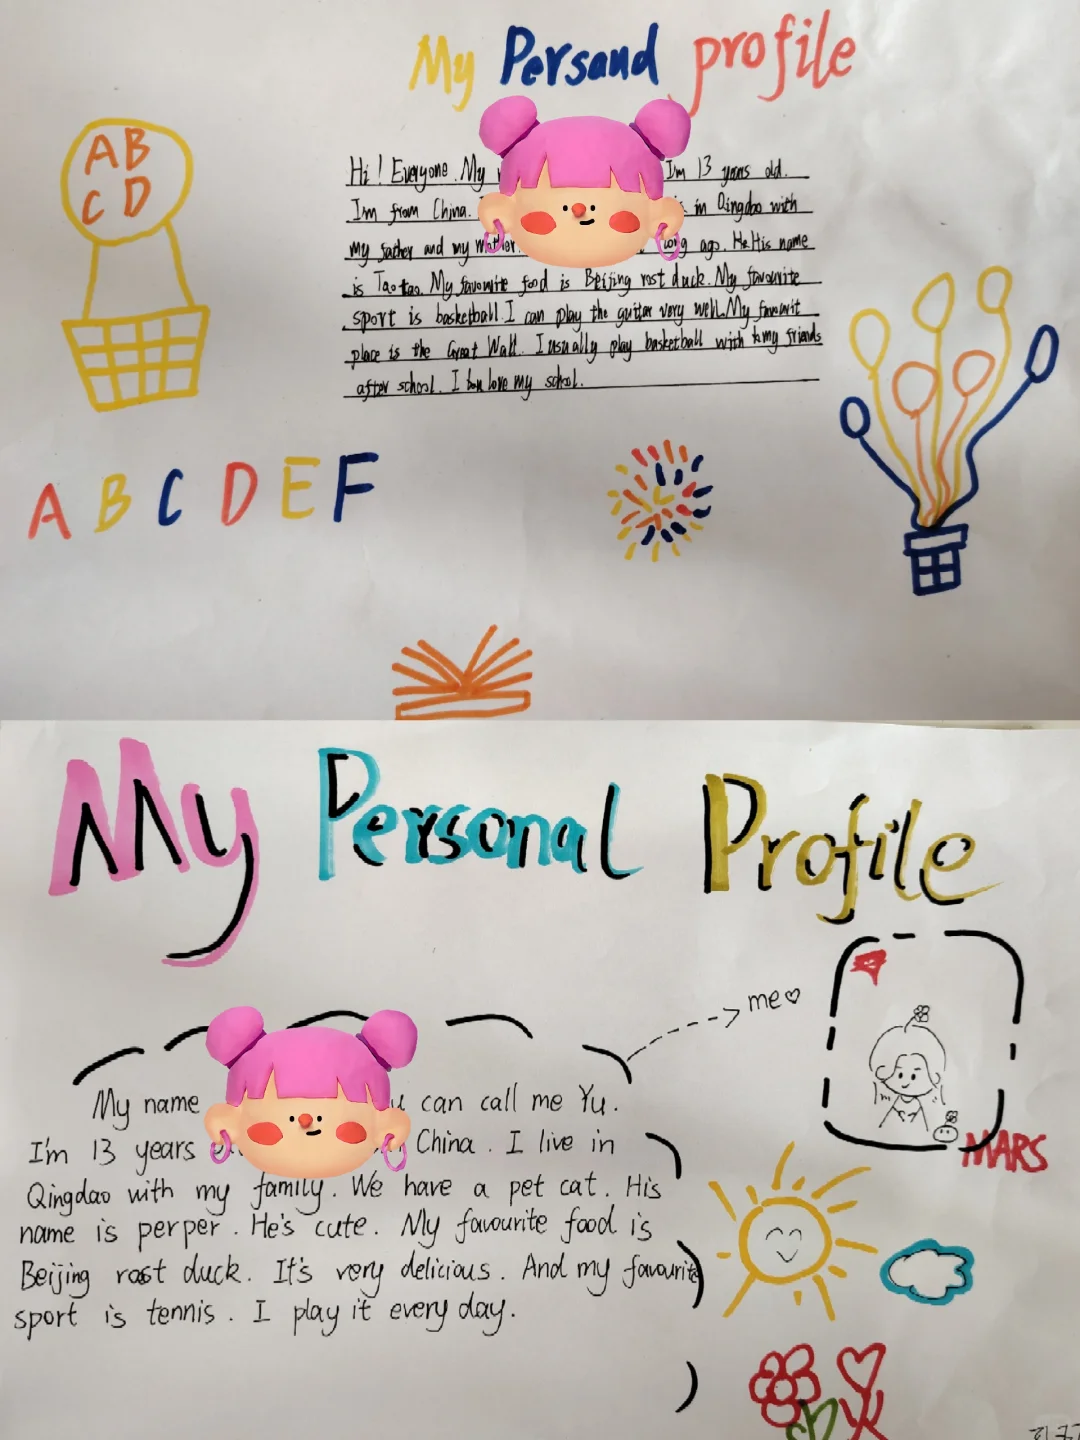 My Persanal profile
AB
CD
Hi! Everyone. My I'm 13 years old.
I'm from China. in Qingdao with
my father and my mother. long ago. He His name
is Taotao. My favowite food is Beijing rost duck. My favourite
sport is basketball. I can play the guitar very well. My favourit
place is the Great Wall. I usually play basketball with my friends
after school. I love my school.
A B C D E F
My Personal Profile
me♡
My name can call me Yu.
I'm 13 years China. I live in
Qingdao with my family. We have a pet cat. His
name is perper. He's cute. My favourite food is
Beijing rost duck. It's very delicious. And my favourite
sport is tennis. I play it every day.
MARS